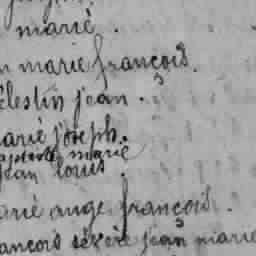 marié.
n marie françois.
élestin jean.
marie joseph.
marie
jean louis.
arie ange françois.
ancois jean marie